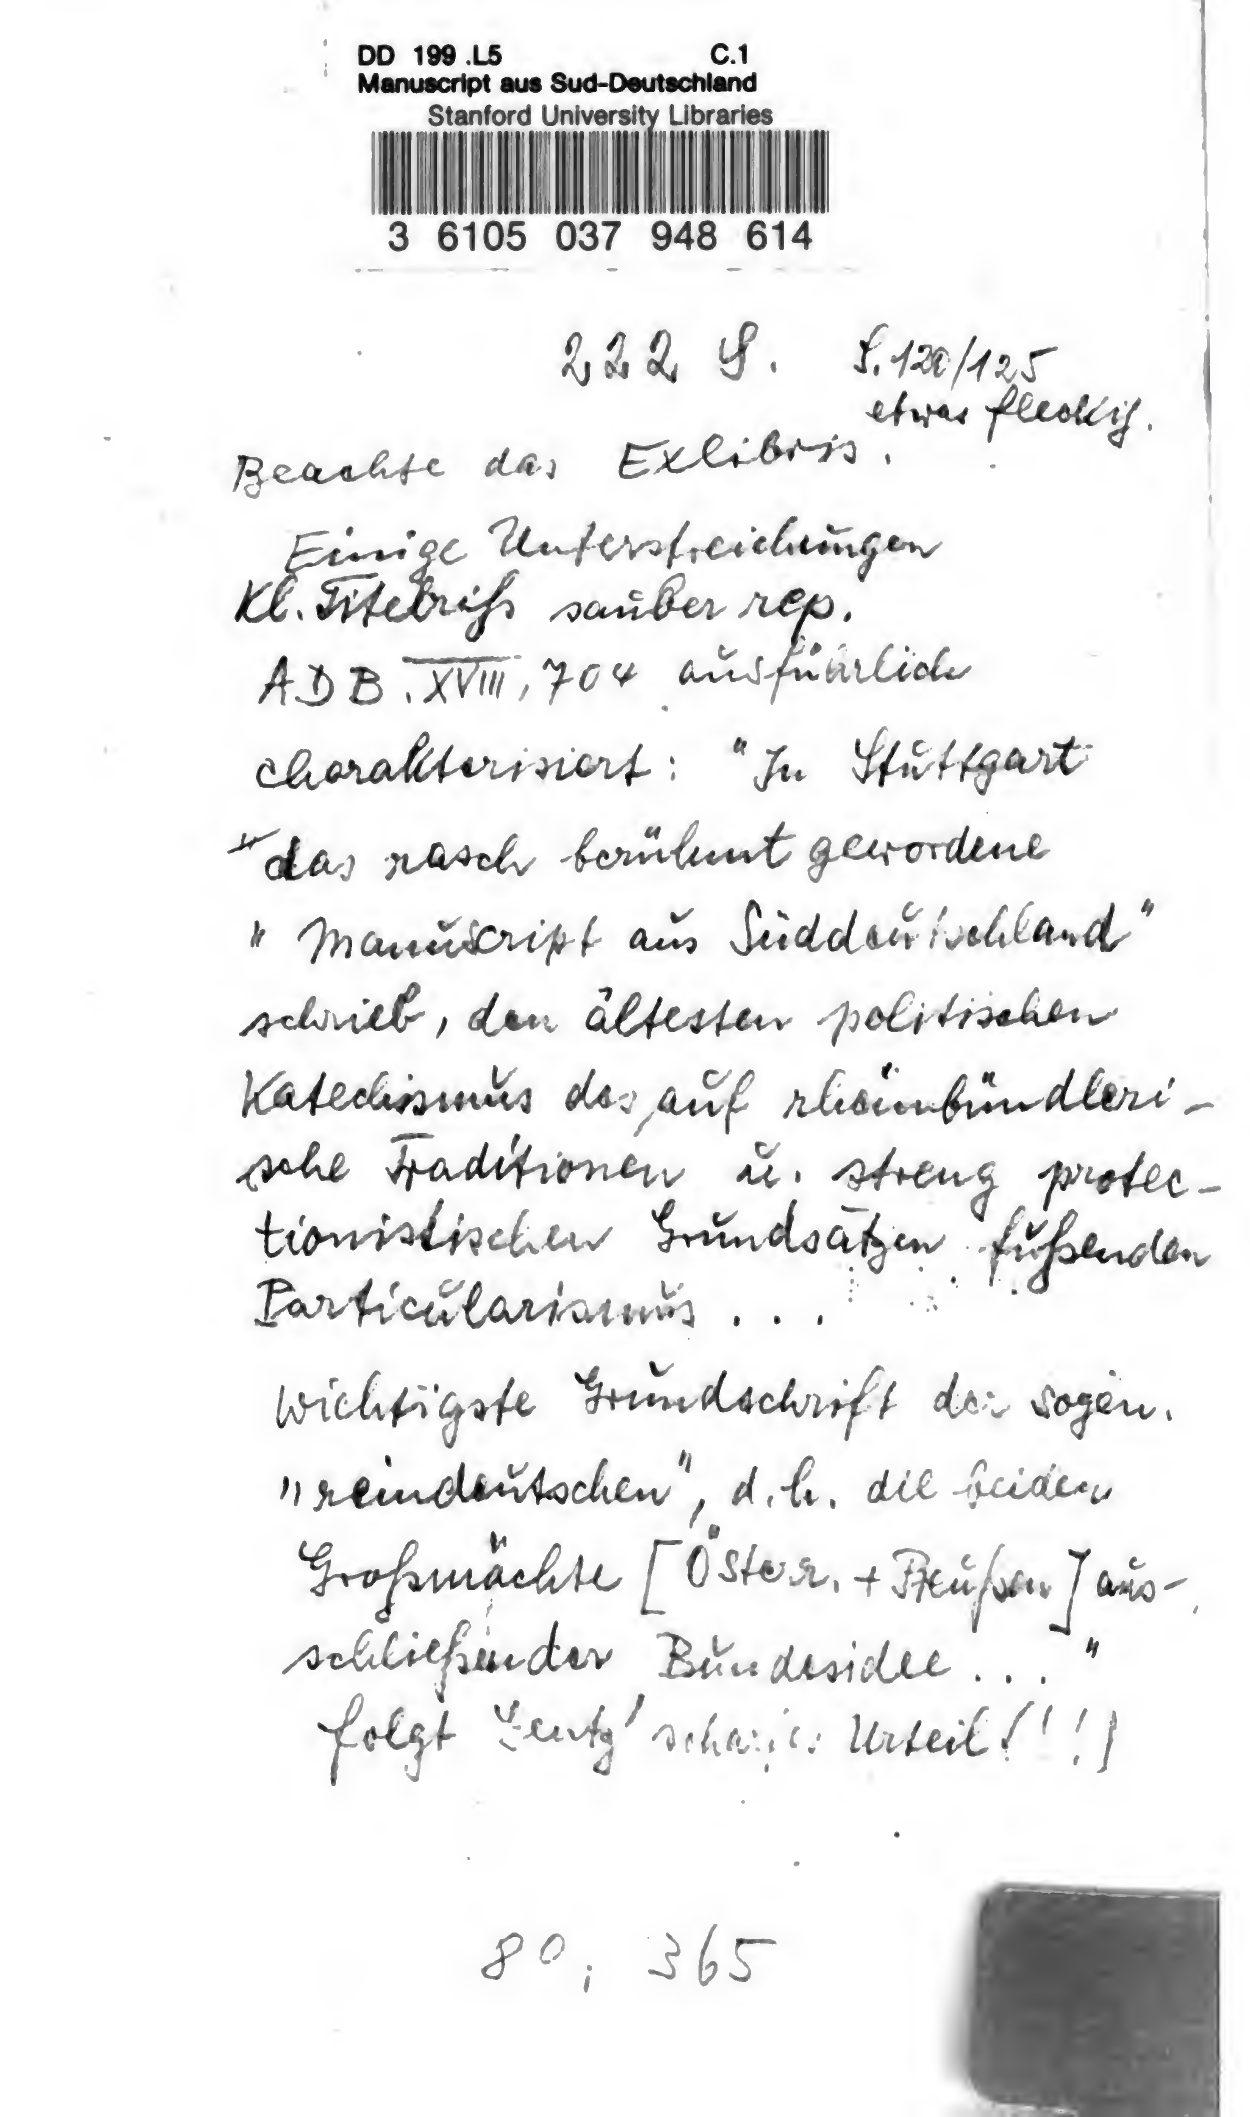 DD 199 .L5 C.1
Manuscript aus Sud-Deutschland
Stanford University Libraries
3 6105 037 948 614
222 S. S. 120/125
etwas fleckig.
Beachte das Exlibris.
Einige Unterstreichungen
Kl. Titelriß sauber rep.
ADB. XVIII, 704 ausführlich
charakterisiert: "In Stuttgart
"das rasch berühmt gewordene
" Manuscript aus Süddeutschland"
schrieb, den ältesten politischen
Katechismus des, auf rheinbündleri-
sche Traditionen u. streng protec-
tionistischen Grundsätzen fußenden
Particularismus ...
wichtigste Grundschrift der sogen.
"reindeutschen", d.h. die beiden
Großmächte [Österr. + Preußen] aus-
schließender Bundesidee ..."
folgt Gentz' Urteil (!!!)
80, 365